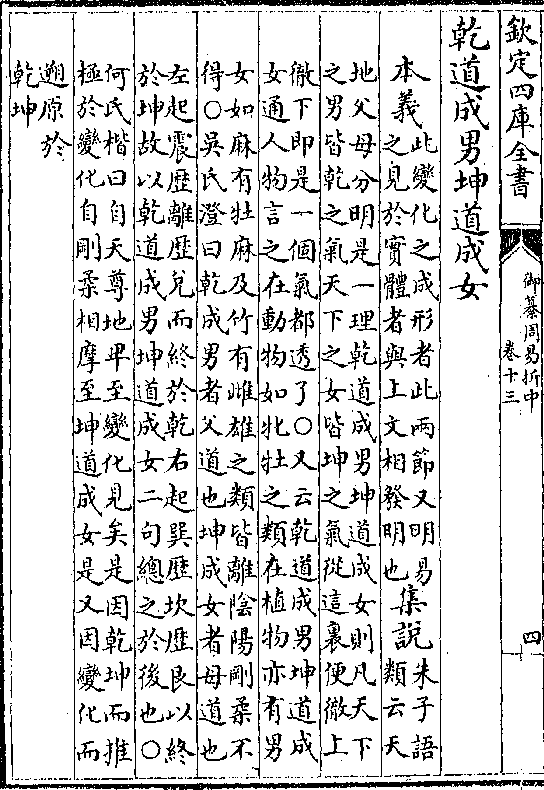 欽定四庫全書
御纂周易折中
卷十三
四
乾道成男坤道成女
本義
此變化之成形者此兩節又明易
之見於實體者與上文相發明也
集說
朱子語
類云天
地父母分明是一理乾道成男坤道成女則凡天下
之男皆乾之氣天下之女皆坤之氣從這裏便徹上
徹下即是一個氣都透了○又云乾道成男坤道成
女通人物言之在動物如牝牡之類在植物亦有男
女如麻有牡麻及竹有雌雄之類皆離陰陽剛柔不
得○吳氏澄曰乾成男者父道也坤成女者母道也
左起震歷離歷兌而終於乾右起巽歷坎歷艮以終
於坤故以乾道成男坤道成女二句總之於後也○
何氏楷曰自天尊地卑至變化見矣是因乾坤而推
極於變化自剛柔相摩至坤道成女是又因變化而
遡原於
乾坤